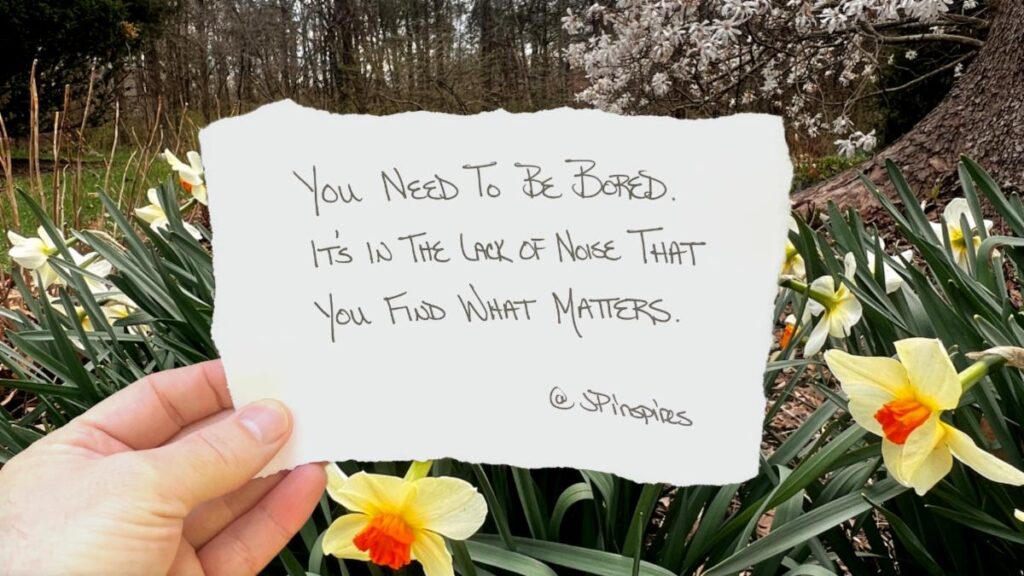 You Need To Be Bored.
It's in The Lack of Noise That
You Find What Matters.
@JPinspires